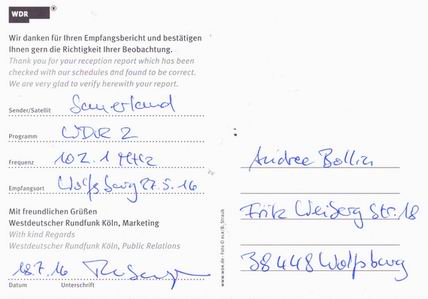 WDR
Wir danken für Ihren Empfangsbericht und bestätigen
Ihnen gern die Richtigkeit Ihrer Beobachtung.
Thank you for your reception report which has been
checked with our schedules and found to be correct.
We are very glad to verify herewith your report.
Sender/Satellit Sauerland
Programm WDR 2
Frequenz 102.1 MHz
Empfangsort Wolfsburg 27.5.16
Mit freundlichen Grüßen
Westdeutscher Rundfunk Köln, Marketing
With kind Regards
Westdeutscher Rundfunk Köln, Public Relations
18.7.16
Datum Unterschrift
Andree Bollin
Fritz Weiberg Str. 18
38448 Wolfsburg